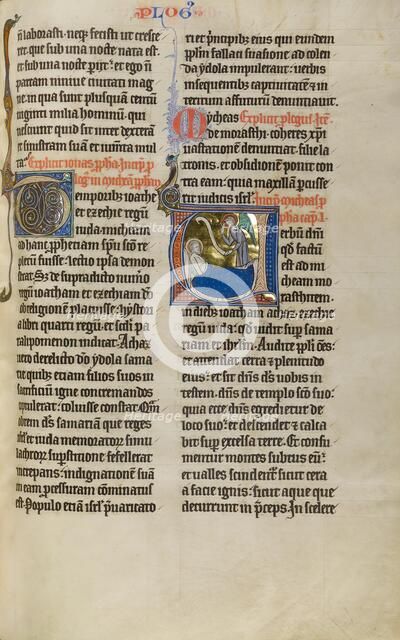 PLOG9
n̄ laborasti· neq; fecisti ut cresce
ret· que sub una nocte nata est·
et sub una nocte perijt· et ego nō
parcam ninive civitati mag
ne· in qua sunt plusquā centū
viginti milia hominū· qui
nesciunt quid sit inter dexterā
et sinistram suā· et iumēta mul
ta· Explicit ionas ppha·
Temporibus ioathe
et ezechie regū
iuda· micheas
ad hanc prophetiam
plenū fuisse· lectio ipsa demon
strat· Sz de supradicto numo
regū ioatham et ezechiam dō
in religionem placuisse· hystori
a libri quarti regū· et scdi pa
ralipomenon indicat· Achaz
vero derelicto dō ydola sama
rie quibz etiam filios suos in
sacrificiū igne concremandos
coluisse constat·
dem dn̄s samariā que reges
et iuda memoratos simu
lachrorz superstitione fefellerat
increpans· indignationē suā
in eam percessuram cōminatus
est· Populo etiā isrl
ri et prīcipibz eius qui eundem
pplm fallaci suasione ad colen
da ydola impulerant· verbis
in sequentibus captivitatē et in
teritum affuturū denunciavit·
Mycheas
de morasthi· coheres xpi
vastationē denunciat· filie la
tronis· et obsidionem ponit con
tra eam· quia maxillā percusse
rit iudicis isrl·
verbum dn̄i
qd factū
est ad mi
cheam mo
rasthitem·
in diebz ioatham achaz ezechie
regum iuda· qd vidit sup sama
riam et ihrlm· Audite ppli ōes·
et attendat terra et plenitudo
eius· et sit dn̄s ds vobis in
testem· dn̄s de templo scō suo·
quia ecce dn̄s egredietur de
loco suo· et descendet et calca
bit sup excelsa terre· Et consu
mentur montes subtus eū·
et valles scindentr sicut cera
a facie ignis· sicut aque que
decurrunt in pceps· In scelere
Heritage
Images